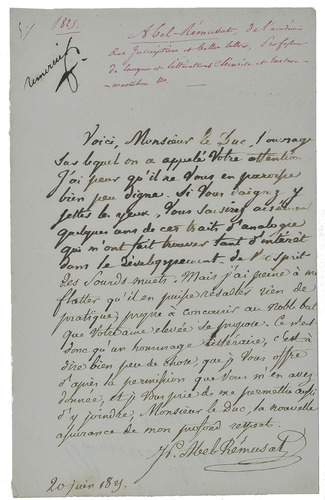 1825.
Abel-Rémusat, de l'académie
des Inscriptions et belles lettres, Professeur
de langue et littérature Chinoise et tartare-
mandchou &c
Voici, Monsieur le Duc, l'ouvrage
sur lequel on a appelé Votre attention
J'ai peur qu'il ne Vous en paroisse
bien peu digne. Si Vous daignez y
jetter les yeux, Vous saisirez aisément
quelques uns de ces traits d'analogie
qui m'ont fait trouver tant d'intérêt
dans le développement de l'esprit
des sourds-muets. Mais j'ai peine à me
flatter qu'il en puisse résulter rien de
pratique, propre à concourir au noble but
que Votre ame élevée se propose. Ce n'est
donc qu'un hommage littéraire, c'est à
dire bien peu de chose, que je Vous offre
d'après la permission que Vous m'en avez
donnée, et je Vous prie de me permettre aussi
d'y joindre, Monsieur le Duc, la nouvelle
assurance de mon profond respect.
JP. Abel-Rémusat
20 juin 1825.